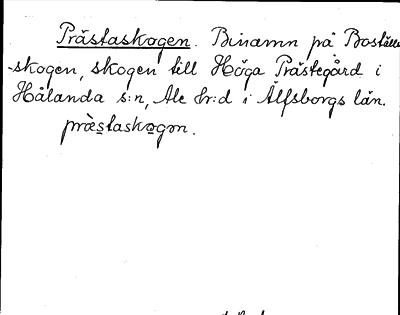 Prästaskogen. Binamn på Boställe
-skogen, skogen till Höga Prästegård i
Hålanda s:n, Ale hr:d i Älfsborgs län.
præ̀staskogən.